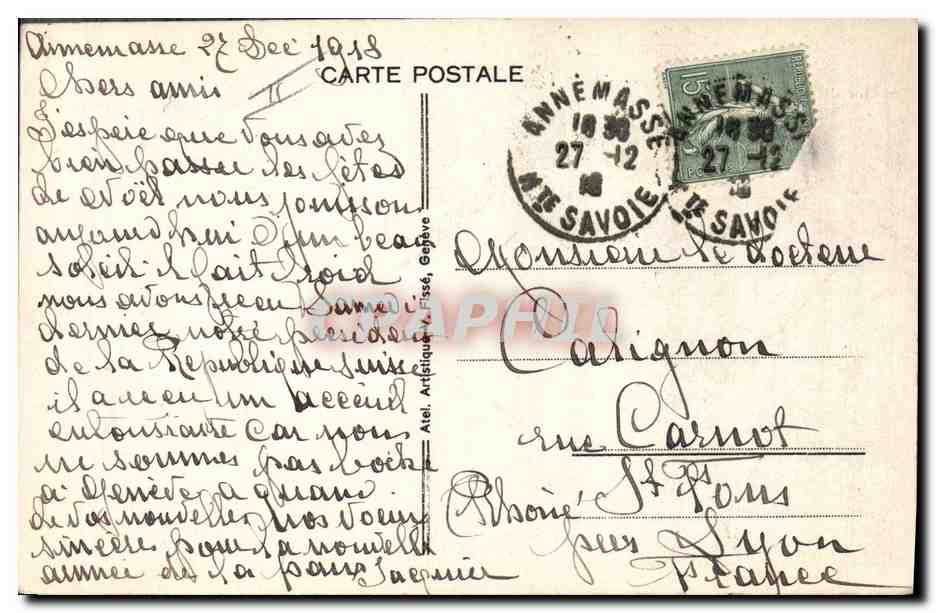 Annemasse 27 Dec 1918
CARTE POSTALE
Chers amis
II
J'espere que vous aves
bien passer les fêtes
de Noël nous jouisson
aujourd hui d'un beau
soleil il fait froid
nous avons recu Samedi
dernier notre président
de la République Suisse
il a recu un acceuil
entousiaste car nous
ne sommes pas boche
a Genève a quand
de vos nouvelles nos voeux
sincères pour la nouvelle
année de la paix Jaquier
Atel. Artistique V. Fissé, Genève
ANNEMASSE
16 30
27 -12
18
Hte SAVOIE
ANNEMASSE
16 30
27 -12
18
Hte SAVOIE
15c
CPAPHIL
Monsieur le Docteur
Catignon
rue Carnot
St Fons
Rhône
près Lyon
France